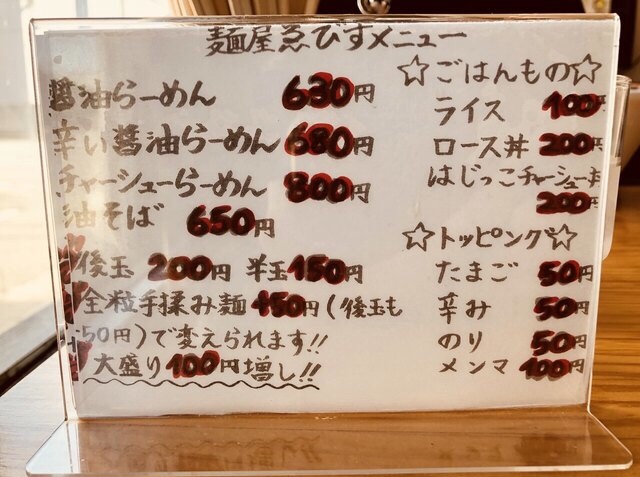 麺屋ゑびすメニュー
醤油らーめん 630円
辛い醤油らーめん 680円
チャーシューらーめん 800円
油そば 650円
後玉 200円 半玉150円
全粒手揉み麺 +50円(後玉も
50円)で変えられます!!
大盛り100円増し!!
☆ごはんもの☆
ライス 100円
ロース丼 200円
はじっこチャーシュー丼
200円
☆トッピング☆
たまご 50円
辛み 50円
のり 50円
メンマ 100円